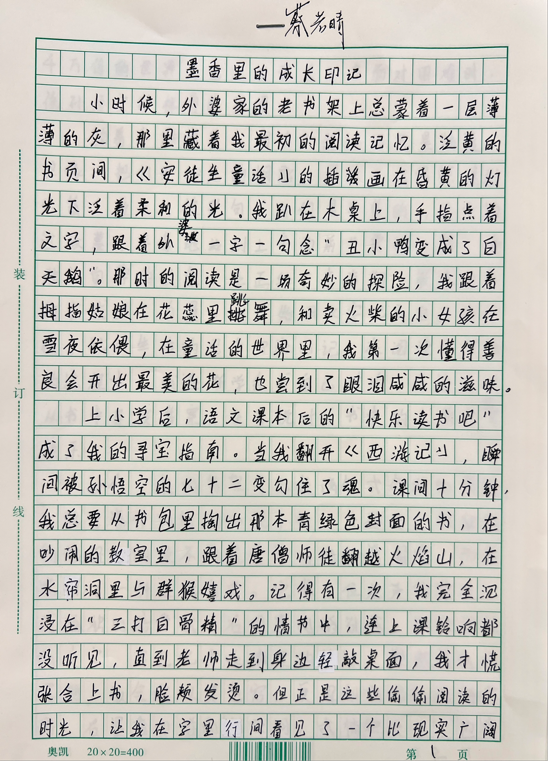 一蔡若晴
墨香里的成长印记
小时候，外婆家的老书架上总蒙着一层薄
薄的灰，那里藏着我最初的阅读记忆。泛黄的
书页间，《安徒生童话》的插画在昏黄的灯
光下泛着柔和的光。我趴在木桌上，手指点着
文字，跟着外婆一字一句念"丑小鸭变成了白
天鹅"。那时的阅读是一场奇妙的探险，我跟着
拇指姑娘在花蕊里跳舞，和卖火柴的小女孩在
雪夜依偎，在童话的世界里，我第一次懂得善
良会开出最美的花，也尝到了眼泪咸咸的滋味。
上小学后，语文课本后的"快乐读书吧"
成了我的寻宝指南。当我翻开《西游记》，瞬
间被孙悟空的七十二变勾住了魂。课间十分钟，
我总要从书包里掏出那本青绿色封面的书，在
吵闹的教室里，跟着唐僧师徒翻越火焰山，在
水帘洞里与群猴嬉戏。记得有一次，我完全沉
浸在"三打白骨精"的情节中，连上课铃响都
没听见，直到老师走到身边轻敲桌面，我才慌
张合上书，脸颊发烫。但正是这些偷偷阅读的
时光，让我在字里行间看见了一个比现实广阔
装
订
线
奥凯 20×20=400
第 1 页